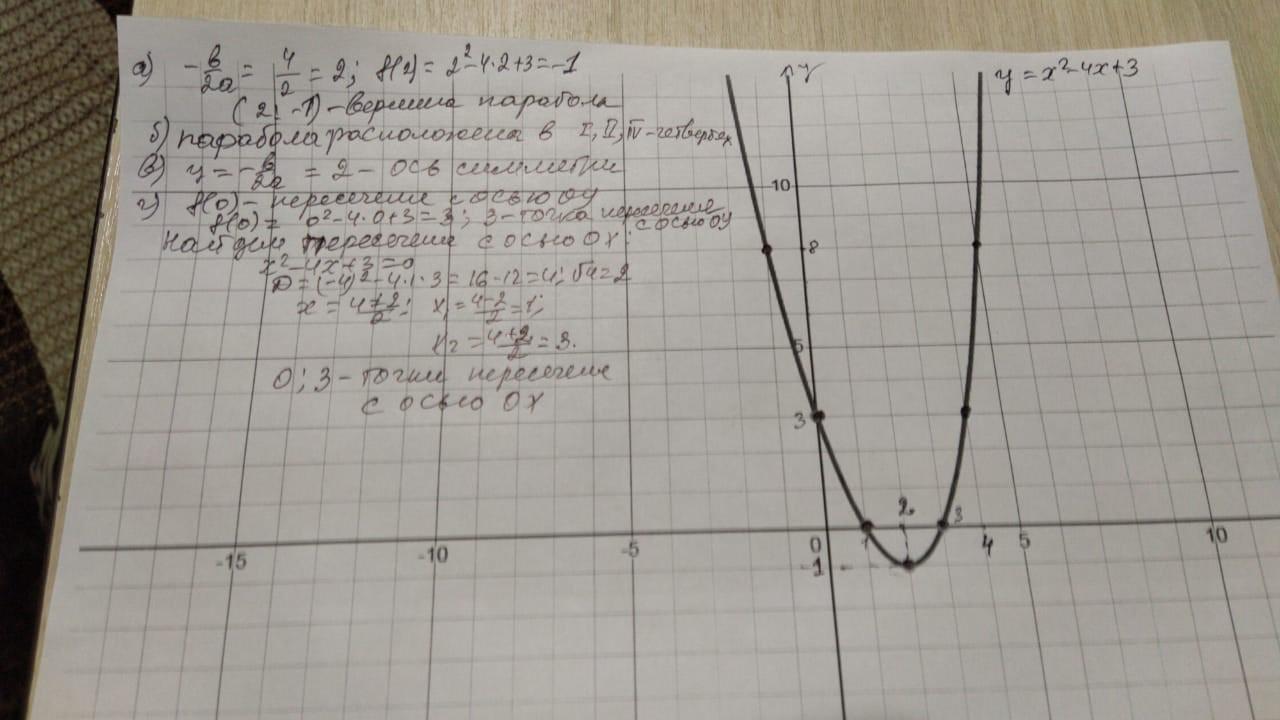 а) -b/2a = 4/2 = 2; f(2) = 2²-4·2+3=-1
(2; -1) - вершина парабола
б) парабола расположена в I, II, IV - четвертях
в) y = -b/2a = 2 - ось симметки
г) f(0) - пересечение с осью OY
f(0) = 0²-4·0+3=3; 3-точка пересечение с осью OY
Найдем пересечение с осью OX:
x²-4x+3=0
D=(-4)²-4·1·3=16-12=4; √4=2
x = 4±2/2; x₁=4-2/2=1;
x₂=4+2/2=3.
0; 3 - точки пересечение
с осью OX
y
y=x²-4x+3
10
8
5
3
2
3
-15
-10
-5
0
1
4
5
10
-1